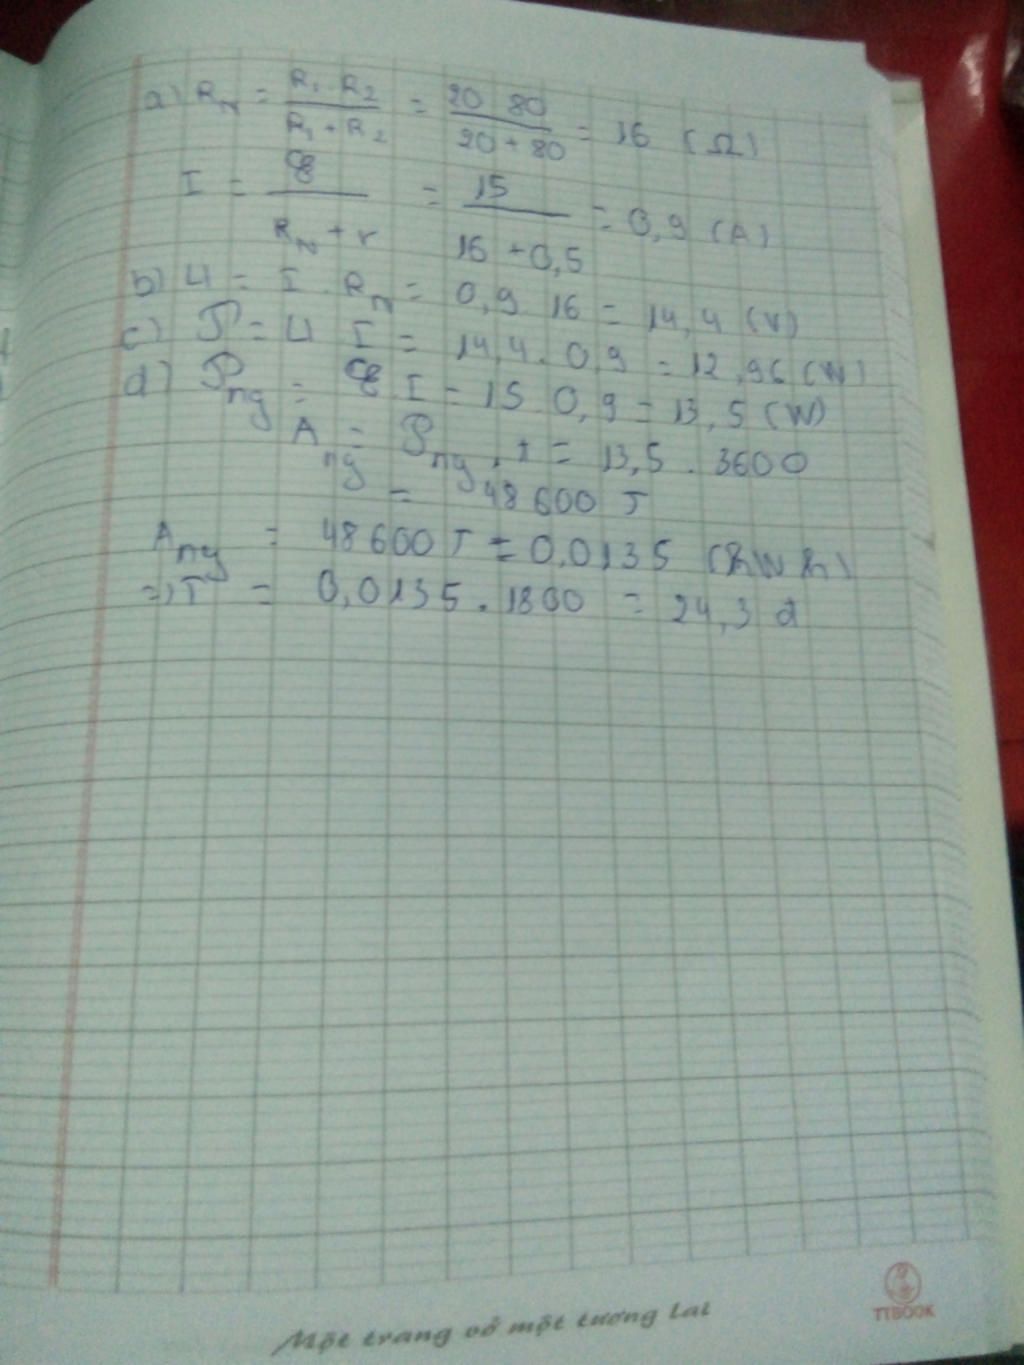 a) R_N = \frac{R_1 . R_2}{R_1 + R_2} = \frac{20 . 80}{20 + 80} = 16 (Ω)
I = \frac{ℰ}{R_N + r} = \frac{15}{16 + 0,5} = 0,9 (A)
b) U = I . R_N = 0,9 . 16 = 14,4 (V)
c) P = U I = 14,4 . 0,9 = 12,96 (W)
d) P_ng = ℰ I = 15 . 0,9 = 13,5 (W)
A_ng = P_ng . t = 13,5 . 3600
= 48600 J
A_ng = 48600 J = 0,0135 (kWh)
=) T = 0,0135 . 1800 = 24,3 đ
TTBOOK
Một trang vở một tương lai